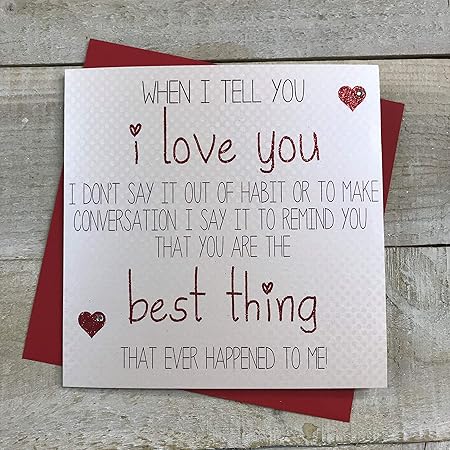 WHEN I TELL YOU
i love you
I DON'T SAY IT OUT OF HABIT OR TO MAKE
CONVERSATION I SAY IT TO REMIND YOU
THAT YOU ARE THE
best thing
THAT EVER HAPPENED TO ME!